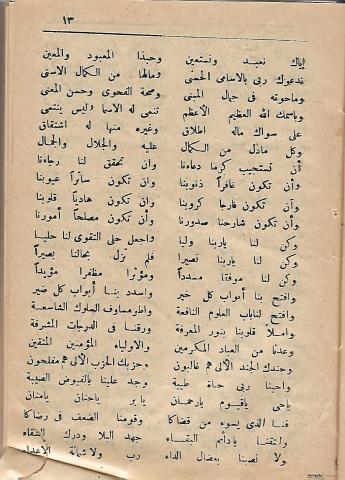 ١٣
إياك نعبد ونستعين وحبذا المعبود والمعين
ندعوك ربي بالأسامي الحسنى ومالها من الكمال الأسنى
وماحوته في جمال المبنى وصحة الفحوى وحسن المعنى
وباسمك الله العظيم الأعظم تنمى له الأسما وليس ينتمى
على سواك ماله اطلاق وغيره منها له اشتقاق
وكل مادل من الكمال عليه والجلال والجمال
أن تستجيب كرما دعاءنا وان تحقق لنا رجاءنا
وأن تكون غافراً ذنوبنا وان تكون ساتراً عيوبنا
وأن تكون فارجا كروبنا وأن تكون هادياً قلوبنا
وأن تكون شارحنا صدورنا وأن تكون مصلحاً أمورنا
وكن لنا ياربنا وليا واجعل حلى التقوى لنا حليا
وكن لنا ياربنا نصيرا فلم تزل بحالنا بصيراً
وكن لنا موفقا مسدداً ومؤثرا مظفرا مؤيداً
وافتح بنا أبواب كل خير واسدد بنا أبواب كل ضير
وافتح لناباب العلوم النافعة واطو مساوف السلوك الشاسعة
واملأ قلوبنا بنور المعرفة ورقنا في الدرجات المشرفة
وعدنا من العباد المكرمين والأولياء المؤمنين المتقين
وجندك الجند الألى هم غالبون وحزبك الحزب الألى هم مفلحون
واحينا ربي حياة طيبة وجد علينا بالفيوض الصيبة
ياحي ياقيوم يارحمان يابر ياحنان يامنان
قنا الذي يسوء من قضاكا وقومنا الضعف في رضاكا
وانتقنا يادائم البقاء جهد البلا ودرك الشقاء
ولا تصبنا بعضال الداء رب ولا شماتة الأعداء